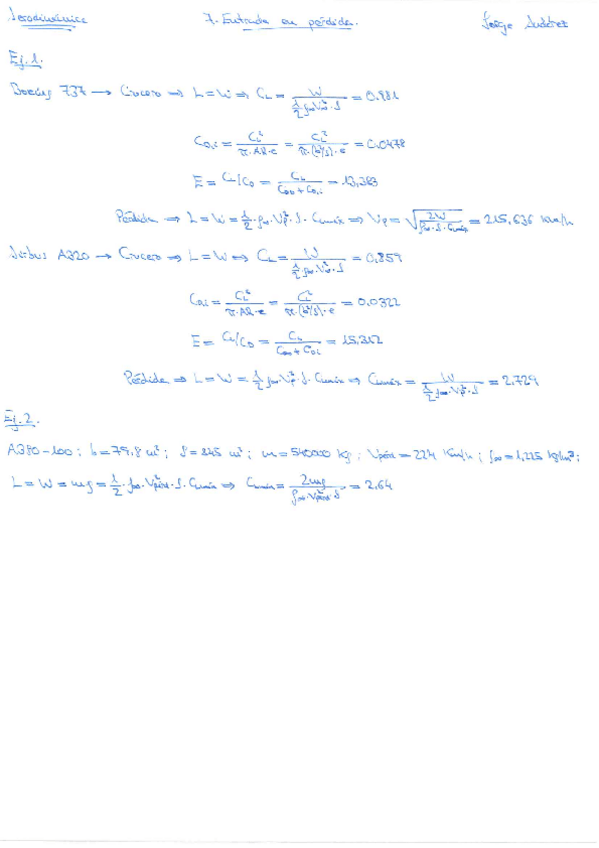 Aerodinámica 7. Entrada en pérdida. Jorge
Ej. 1.
Boeing 737 → Crucero ⇒ L = W ⇒ C_L = W / (½ ρ∞ V∞² · S) = 0.881
C_D,i = C_L² / (π · AR · e) = C_L² / (π · (b²/S) · e) = 0.0478
E = C_L/C_D = C_L / (C_D0 + C_D,i) = 13,383
Pérdida ⇒ L = W = ½ · ρ∞ · V_p² · S · C_Lmáx ⇒ V_p = √(2W / (ρ∞ · S · C_Lmáx)) = 215,636 km/h
Airbus A320 → Crucero ⇒ L = W ⇒ C_L = W / (½ ρ∞ · V∞² · S) = 0.859
C_D,i = C_L² / (π · AR · e) = C_L² / (π · (b²/S) · e) = 0.0322
E = C_L/C_D = C_L / (C_D0 + C_D,i) = 15,312
Pérdida ⇒ L = W = ½ ρ∞ · V_p² · S · C_Lmáx ⇒ C_Lmáx = W / (½ ρ∞ · V_p² · S) = 2,729
Ej. 2.
A380-100 : b = 79,8 m² ; S = 845 m² ; m = 540000 kg ; V_pérd = 224 Km/h ; ρ∞ = 1,225 kg/m³ ;
L = W = mg = ½ · ρ∞ · V_pérd² · S · C_Lmáx ⇒ C_Lmáx = 2mg / (ρ∞ · V_pérd² · S) = 2,64